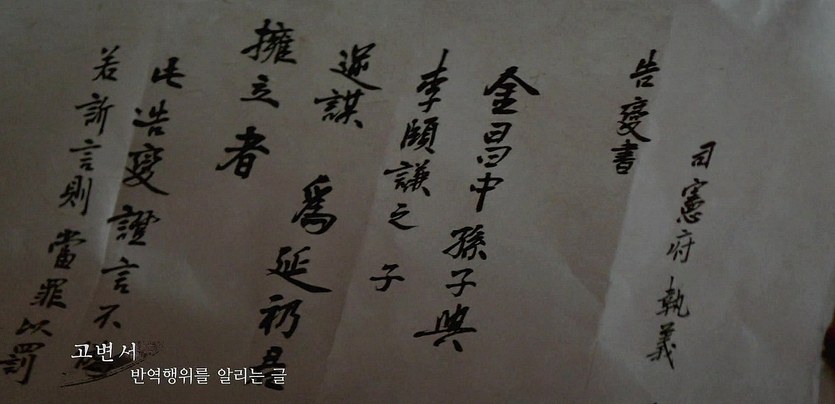 司憲府 執義
告變書
金昌中 孫子與
李頤謙之 子
逆謀 爲延礽君
擁立者
此告變證言不
若訴言則當罪以罰
고변서
반역행위를 알리는 글